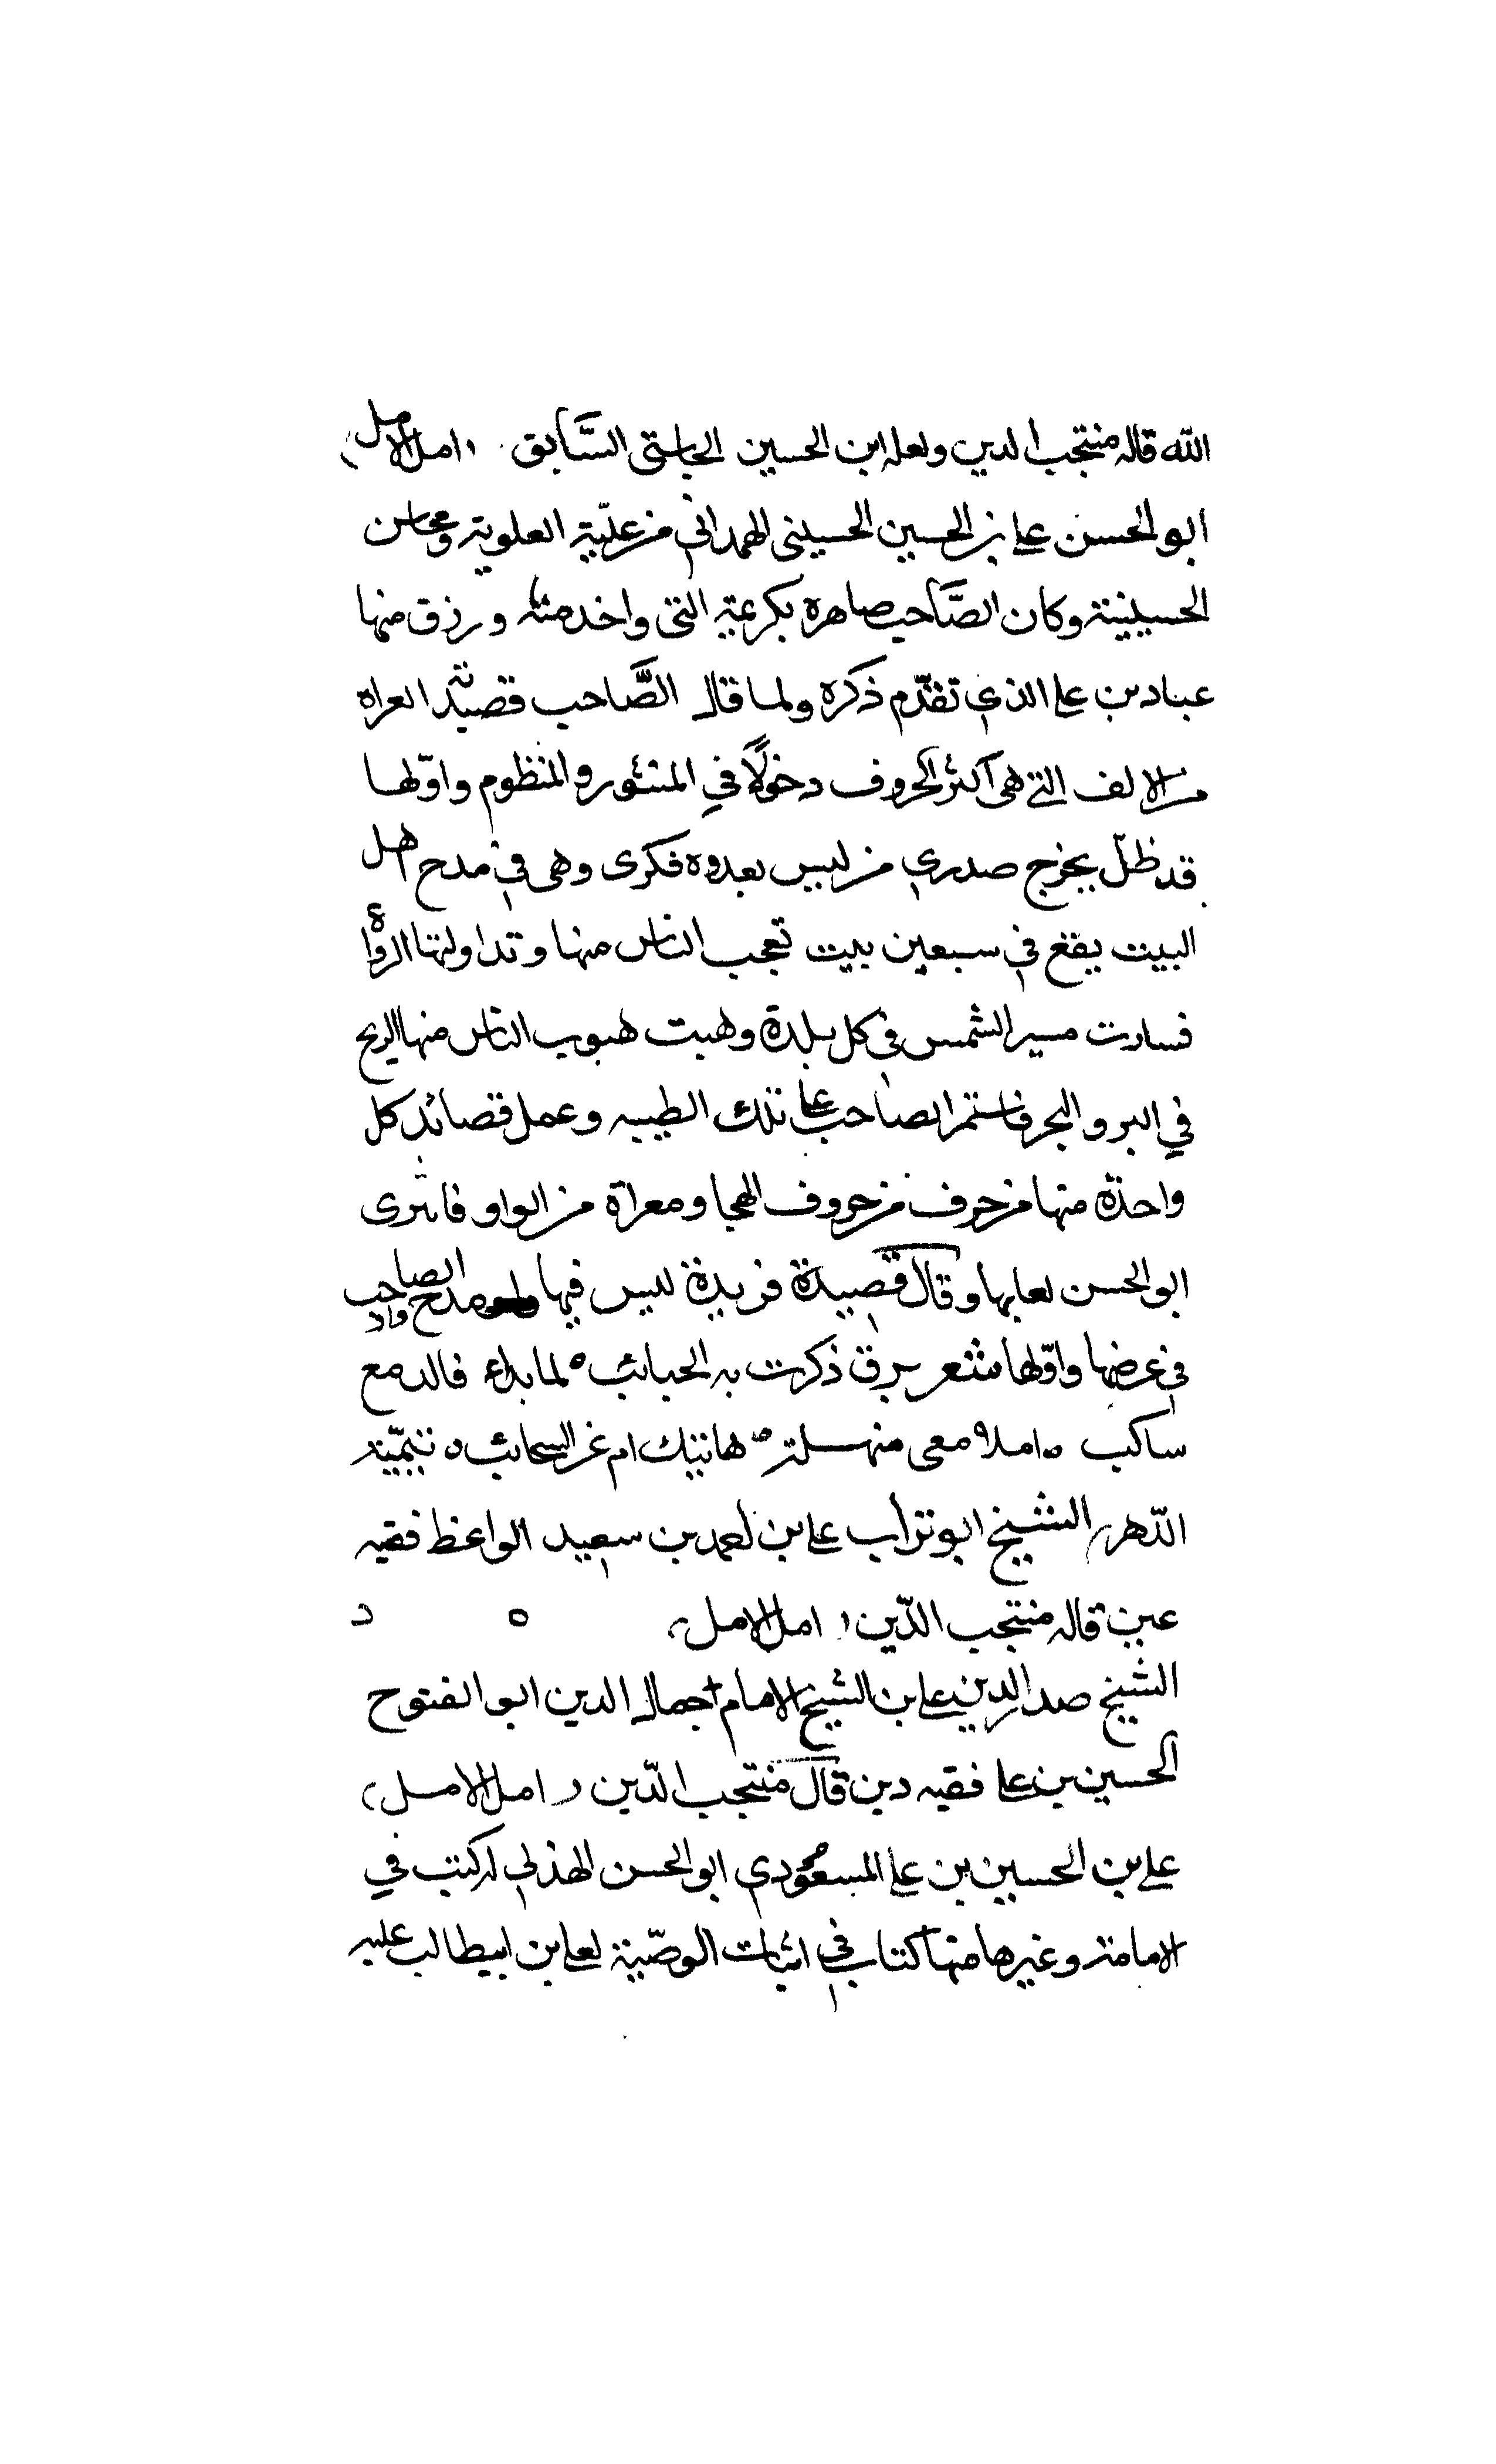 الله قاله منتجب الدين ولعله ابن الحسين الجاستى السَّابق (امل الامل)
ابو الحسن على بن الحسين الحسينى الهمدانى من عليّة العلوية ومحاسن
الحسينية وكان الصَّاحب صاهره بكريمته التى واخدمته ورزق منها
عباد بن على الذى تقدّم ذكره ولما قال الصَّاحب قصيدته المعراه
من الالف التى هى اكثر الحروف دخولًا في المنثور والمنظوم واوّلها
قد ظلّ يخرج صدرى من ليس يعدوه فكرى وهى فى مدح اهل
البيت يقع فى سبعين بيت تعجب الناس منها وتداولتها الرواة
فسارت مسير الشمس فى كل بلدة وهبت هبوب الناس منها الريح
في البر والبحر فاستمر الصاحب على تلك الطيبه وعمل قصائد كل
واحدة منها من حرف من حروف الهجا ومعراة من الواو فانبرى
ابو الحسن لعابها وقال قصيدة فريدة ليس فيها واو ومدح الصاحب
فى عرضها واوّلها شعر برق ذكرت به الحبائب ه لما بدا فالدمع
ساكب ه امدامعى منهلة ه هاتيك ام غر السحائب ه يتيمة
الدّهر الشيخ ابو تراب على بن لحمد بن سعيد الواعظ فقيه
عين قاله منتجب الدّين (امل الامل) ه د
الشيخ صدر الدين على بن الشيخ الامام جمال الدين ابو الفتوح
الحسين بن على فقيه دين قال منتجب الدّين (امل الامل)
على بن الحسين بن على المسعودى ابو الحسن الهذلى له كتب في
الامامة وغيرها منها كتاب فى اثبات الوصّية لعلى بن ابيطالب عليه